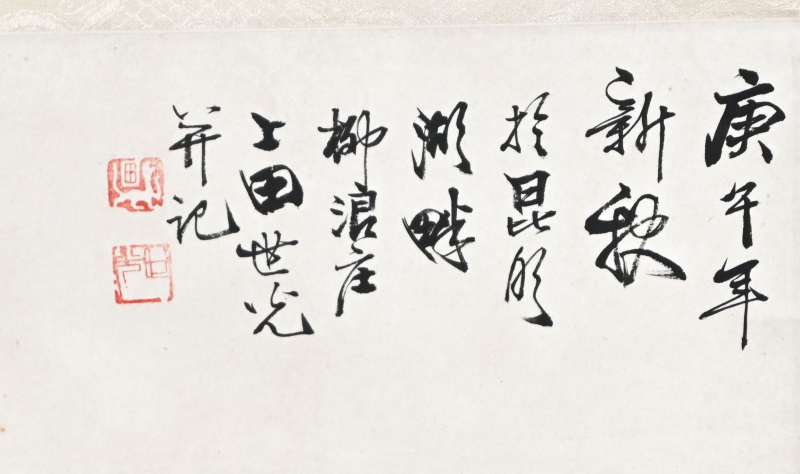 庚午年
新秋
於昆明
湖畔
柳浪庄
上田世光
并记